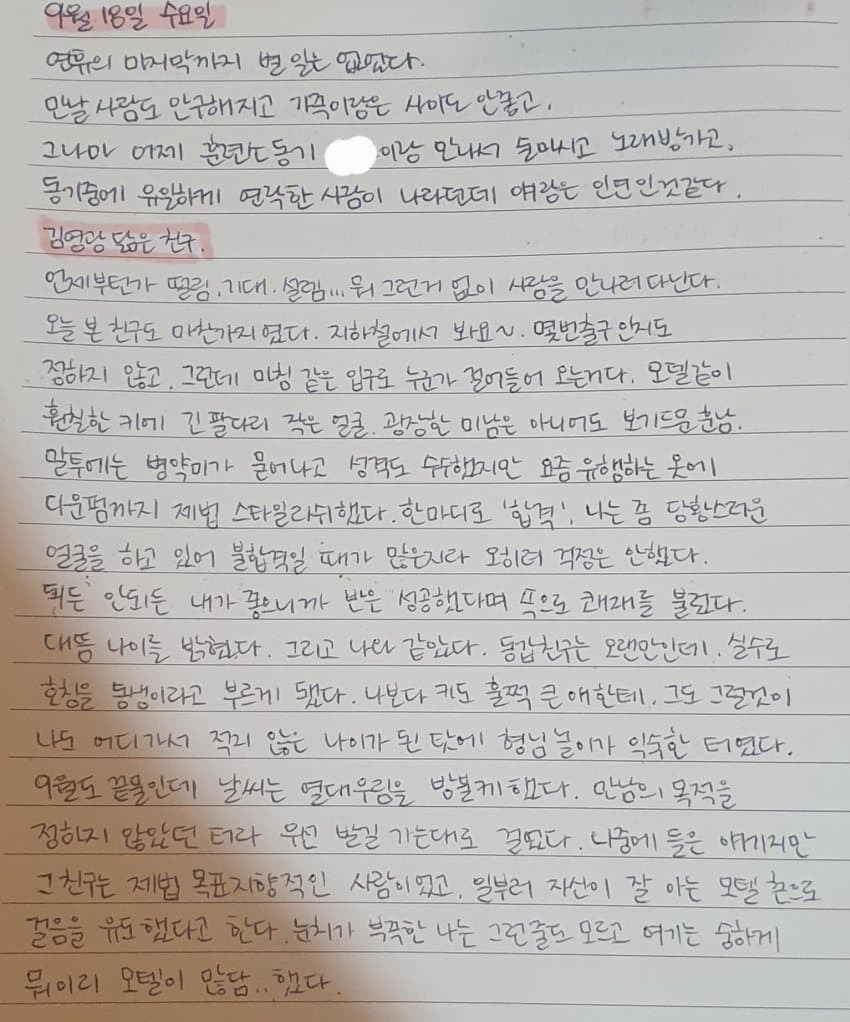 9월 18일 수요일
연휴의 마지막까지 별 일은 없었다.
만날 사람도 안구해지고 가족이랑은 사이도 안좋고,
그나마 어제 훈련소동기 이랑 만나서 술마시고 노래방가고,
동기중에 유일하게 연락한 사람이 나라던데 얘랑은 인연인것같다.
김영광 닮은 친구.
언제부턴가 떨림, 기대, 설렘... 뭐 그런거 없이 사람을 만나러 다닌다.
오늘 본 친구도 마찬가지였다. 지하철에서 봐요~. 몇번출구인지도
정하지 않고, 그런데 마침 같은 입구로 누군가 걸어들어 오는거다. 모델같이
훤칠한 키에 긴 팔다리 작은 얼굴. 굉장한 미남은 아니어도 보기드문 훈남.
말투에는 병약미가 묻어나고 성격도 수수했지만 요즘 유행하는 옷에
다운펌까지 제법 스타일리쉬했다. 한마디로 '합격'. 나는 좀 당황스러운
얼굴을 하고 있어 불합격일 때가 많은지라 오히려 걱정은 안했다.
되든 안되든 내가 좋으니까 반은 성공했다며 속으로 쾌재를 불렀다.
대뜸 나이를 밝혔다. 그리고 나와 같았다. 동갑친구는 오랜만인데, 실수로
호칭을 동생이라고 부르게 됐다. 나보다 키도 훌쩍 큰 애한테. 그도 그럴것이
나도 어디가서 적지 않은 나이가 된 탓에 형님놀이가 익숙한 터였다.
9월도 끝물인데 날씨는 열대우림을 방불케했다. 만남의 목적을
정하지 않았던 터라 우선 발길 가는대로 걸었다. 나중에 들은 얘기지만
그 친구는 제법 목표지향적인 사람이었고, 일부러 자신이 잘 아는 모텔 촌으로
걸음을 유도했다고 한다. 눈치가 부족한 나는 그런줄도 모르고 여기는 숭하게
뭐이리 모텔이 많담.. 했다.